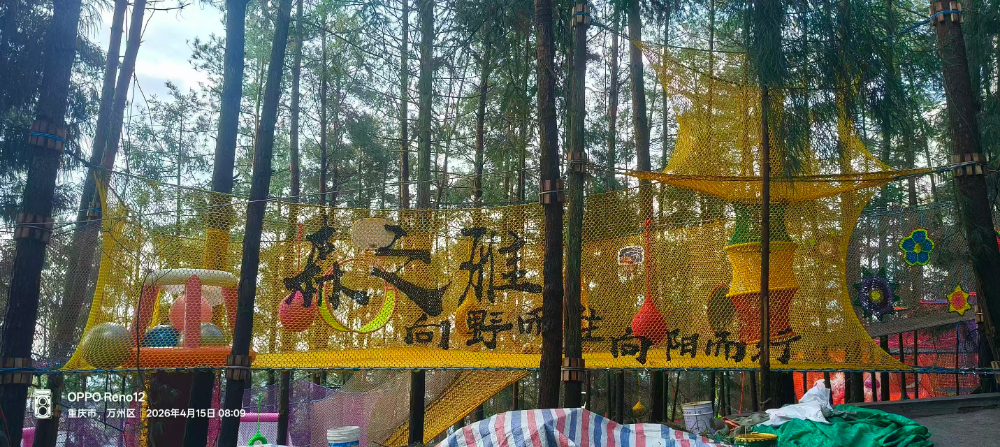 森之雅
向野而往 向阳而行
OPPO Reno12
重庆市，万州区 | 2026年4月15日 08:09